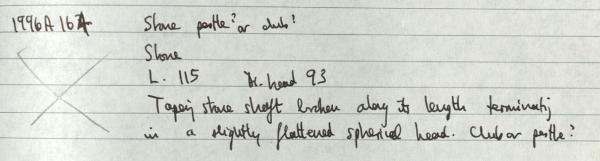 1996A 167 Stone pestle? or club?
Stone
L. 115 Dr. head 93
Taperg stone shaft broken along its length terminatg
in a slightly flattened spherical head. Club or pestle?